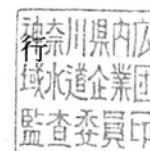 神奈川県内広
行
域水道企業団
監査委員印